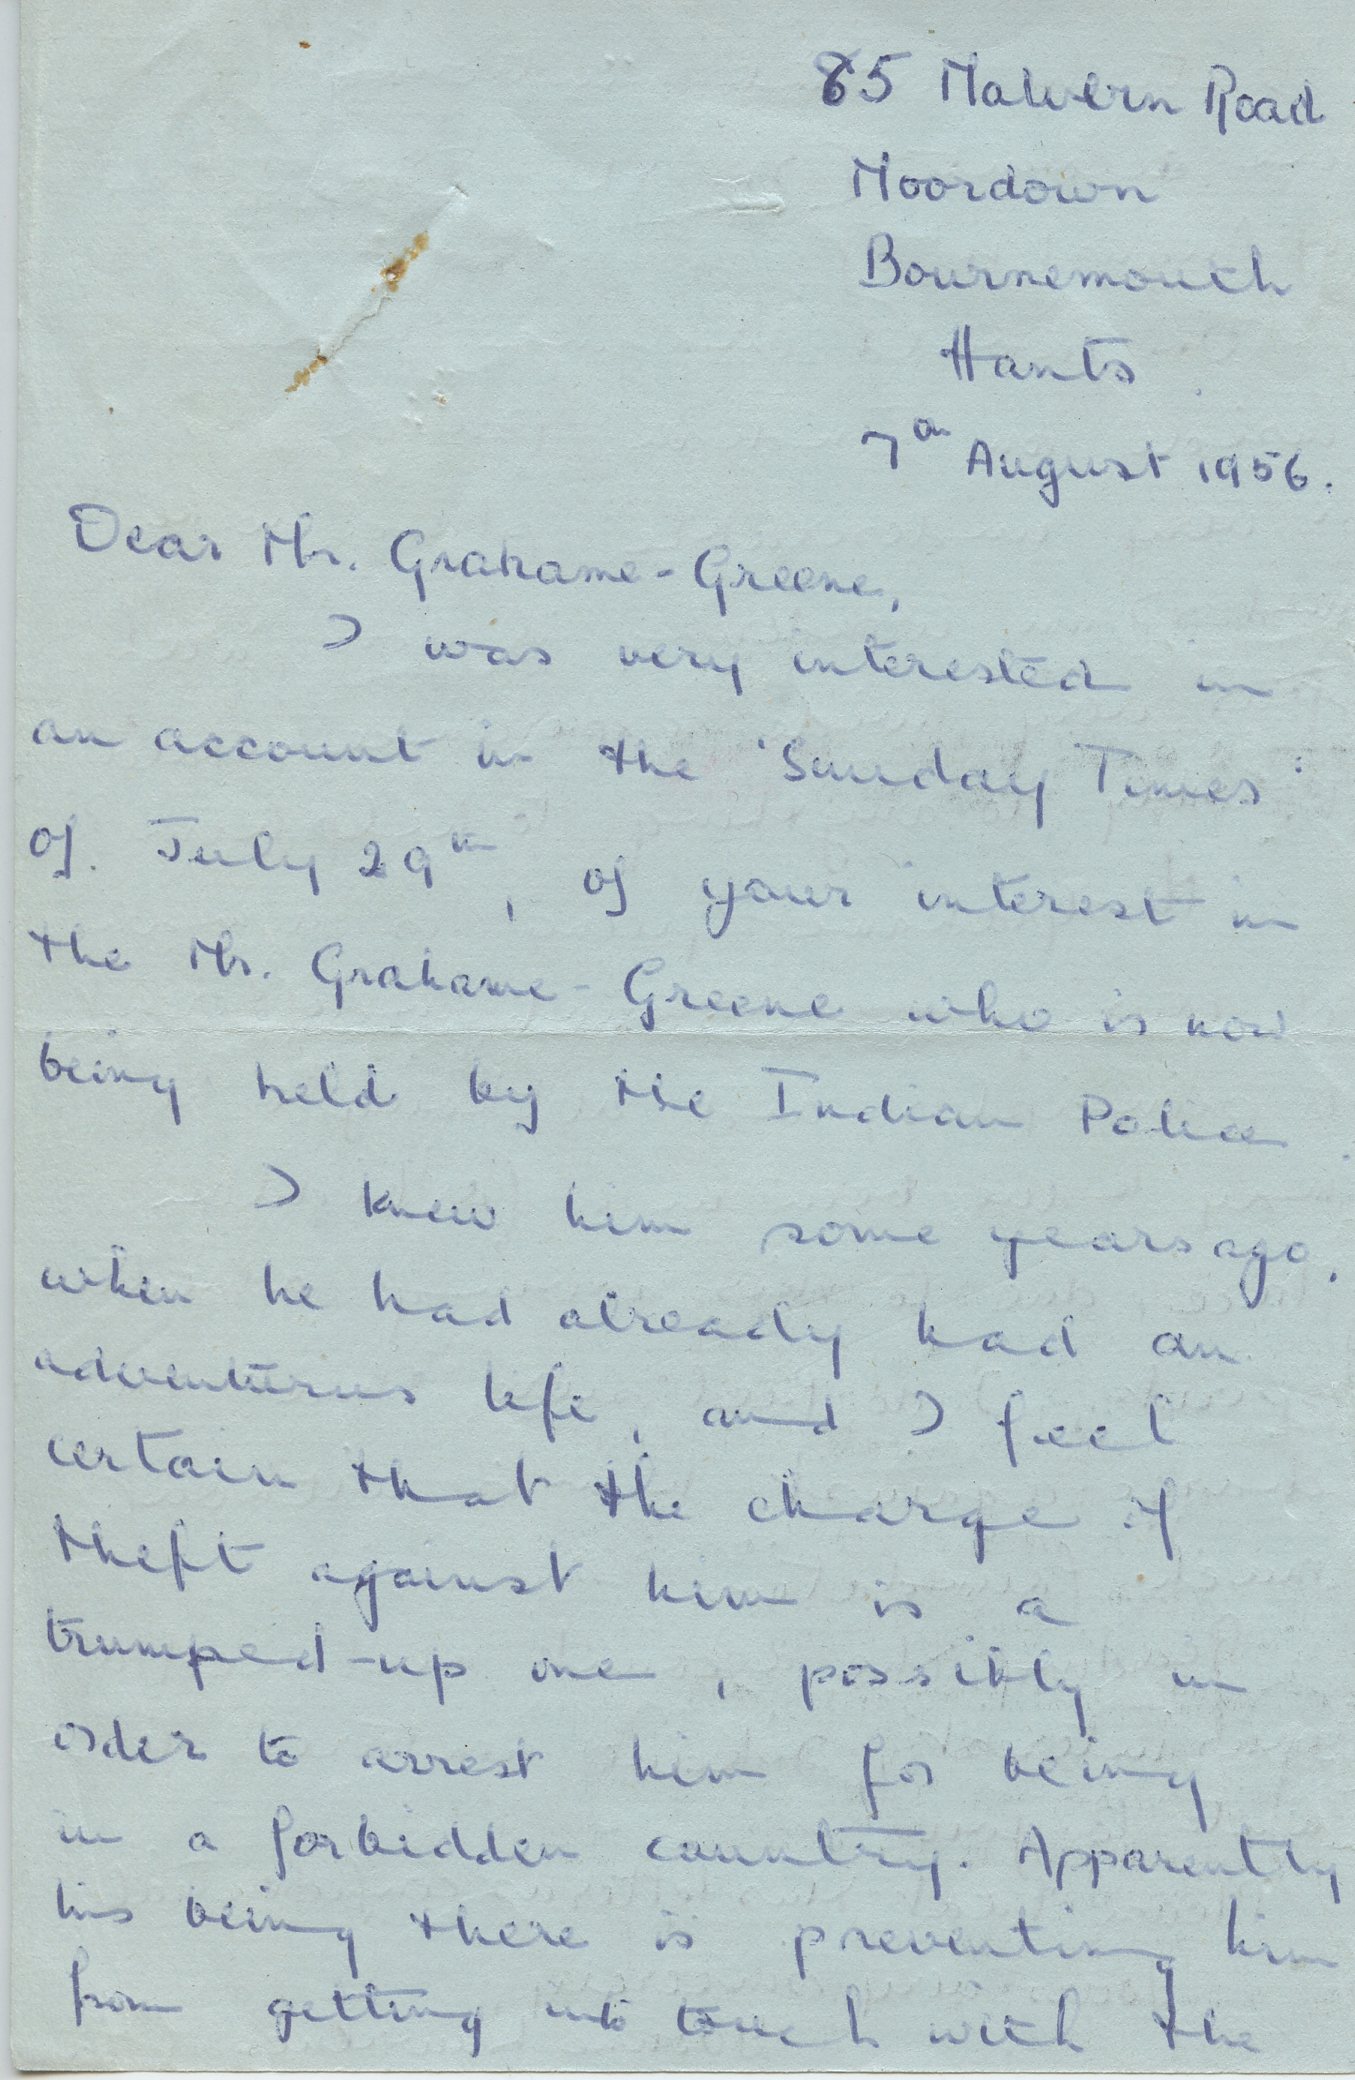 85 Malvern Road
Moordown
Bournemouth
Hants.
7th August 1956.
Dear Mr. Grahame-Greene,
I was very interested in
an account in the 'Sunday Times'
of July 29th, of your interest in
the Mr. Grahame-Greene who is now
being held by the Indian Police.
I knew him some years ago,
when he had already had an
adventurus life, and I feel
certain that the charge of
theft against him is a
trumped-up one, possibly in
order to arrest him for being
in a forbidden country. Apparently
his being there is preventing him
from getting into touch with the